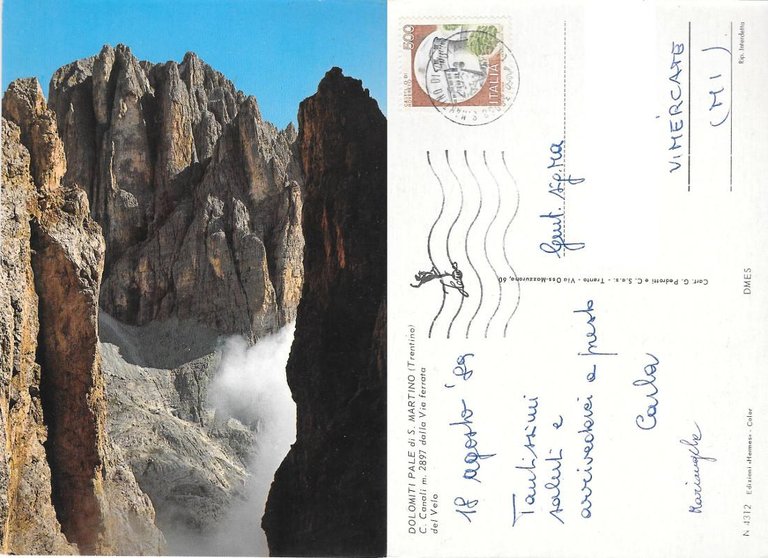 DOLOMITI PALE di S. MARTINO (Trentino)
C. Canali m. 2897 dalla Via ferrata
del Velo
18 agosto '89
Tantissimi
saluti e
arrivederci a presto
Carla
Mariangela
N 4312 Edizioni «Hermes» - Color
500
ITALIA
Gent. Sig.na
VIMERCATE
(MI)
Cart. G. Pedrotti e C. S.a.s. - Trento - Via Oss-Mazzurana, 60
DMES
Rip. Interdetta